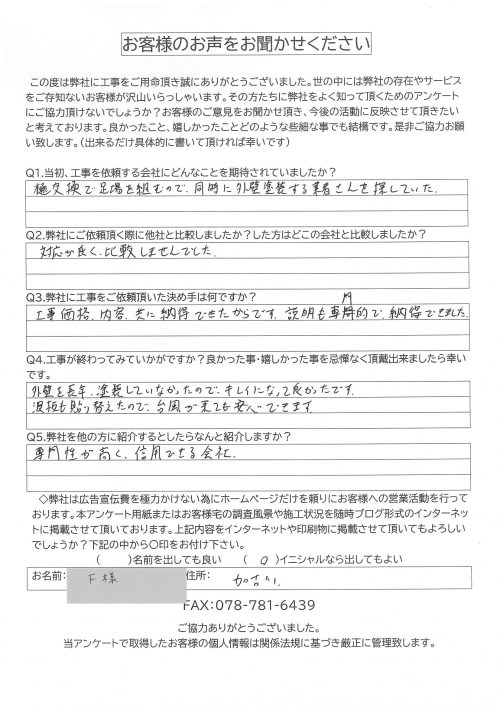 お客様のお声をお聞かせください
この度は弊社に工事をご用命頂き誠にありがとうございました。世の中には弊社の存在やサービス
をご存知ないお客様が沢山いらっしゃいます。その方たちに弊社をよく知って頂くためのアンケート
にご協力頂けないでしょうか?お客様のご意見をお聞かせ頂き、今後の活動に反映させて頂きたい
と考えております。良かったこと、嬉しかったことどのような些細な事でも結構です。是非ご協力お願
い致します。(出来るだけ具体的に書いて頂ければ幸いです)
Q1.当初、工事を依頼する会社にどんなことを期待されていましたか?
樋交換で足場を組むので、同時に外壁塗装する業者さんを探していた。
Q2.弊社にご依頼頂く際に他社と比較しましたか?した方はどこの会社と比較しましたか?
対応が良く、比較しませんでした。
Q3.弊社に工事をご依頼頂いた決め手は何ですか?
工事価格、内容、共に納得できたからです。説明も専門的で、納得できました。
Q4.工事が終わってみていかがですか?良かった事・嬉しかった事を忌憚なく頂戴出来ましたら幸い
です。
外壁を長年、塗装していなかったので、キレイになって良かったです。
波板も貼り替えたので、台風が来ても安心できます
Q5.弊社を他の方に紹介するとしたらなんと紹介しますか?
専門性が高く、信用できる会社。
◇弊社は広告宣伝費を極力かけない為にホームページだけを頼りにお客様への営業活動を行って
おります。本アンケート用紙またはお客様宅の調査風景や施工状況を随時ブログ形式のインターネッ
トに掲載させて頂いております。上記内容をインターネットや印刷物に掲載させて頂いてもよろしい
でしょうか?下記の中から〇印をお付け下さい。
( )名前を出しても良い ( ○ )イニシャルなら出してもよい
お名前: F様 住所: 加古川
FAX:078-781-6439
ご協力ありがとうございました。
当アンケートで取得したお客様の個人情報は関係法規に基づき厳正に管理致します。